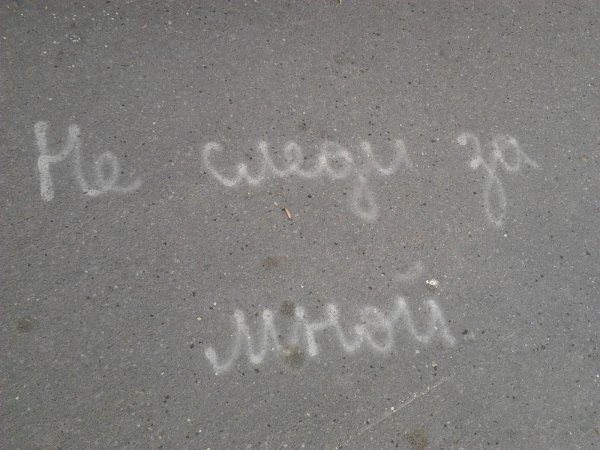 Не следи за
мной